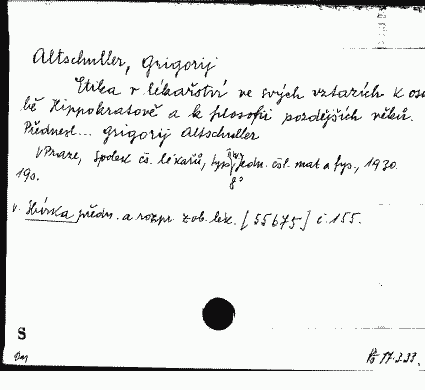 Altschuller, Grigorij
Etika v lékařství ve svých vztazích k oso
bě Hippokratově a k filosofii pozdějších věků.
Přednesl... Grigorij Altschuller
V Praze, Spolek čs. lékařů, typ. Jedn. čsl. mat a fys., 1930.
8°
19s.
v. Sbírka předn. a rozpr. z ob. lék. [55675] č. 155.
S